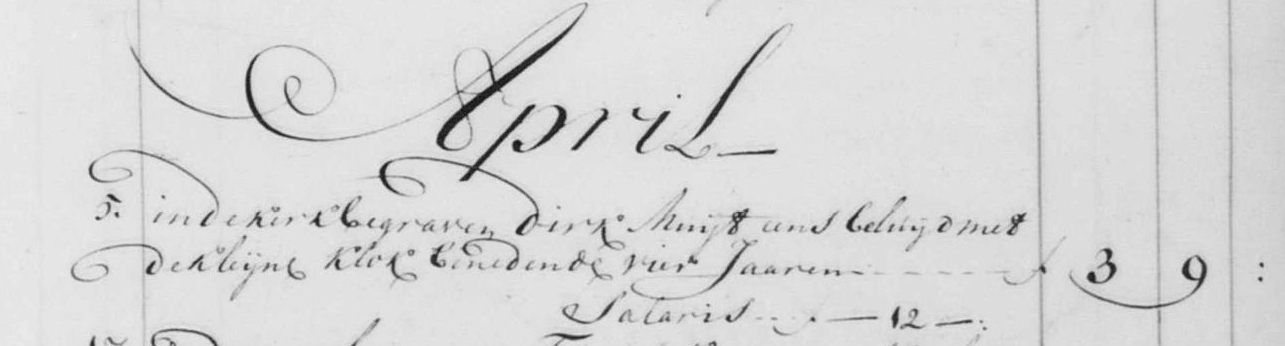 April
5. in de kerk begraven Dirk Muijt eens beluijd met
de kleijne klok beneden de vier Jaaren - - - - - f 3 9 :
Salaris - - f — 12 — :